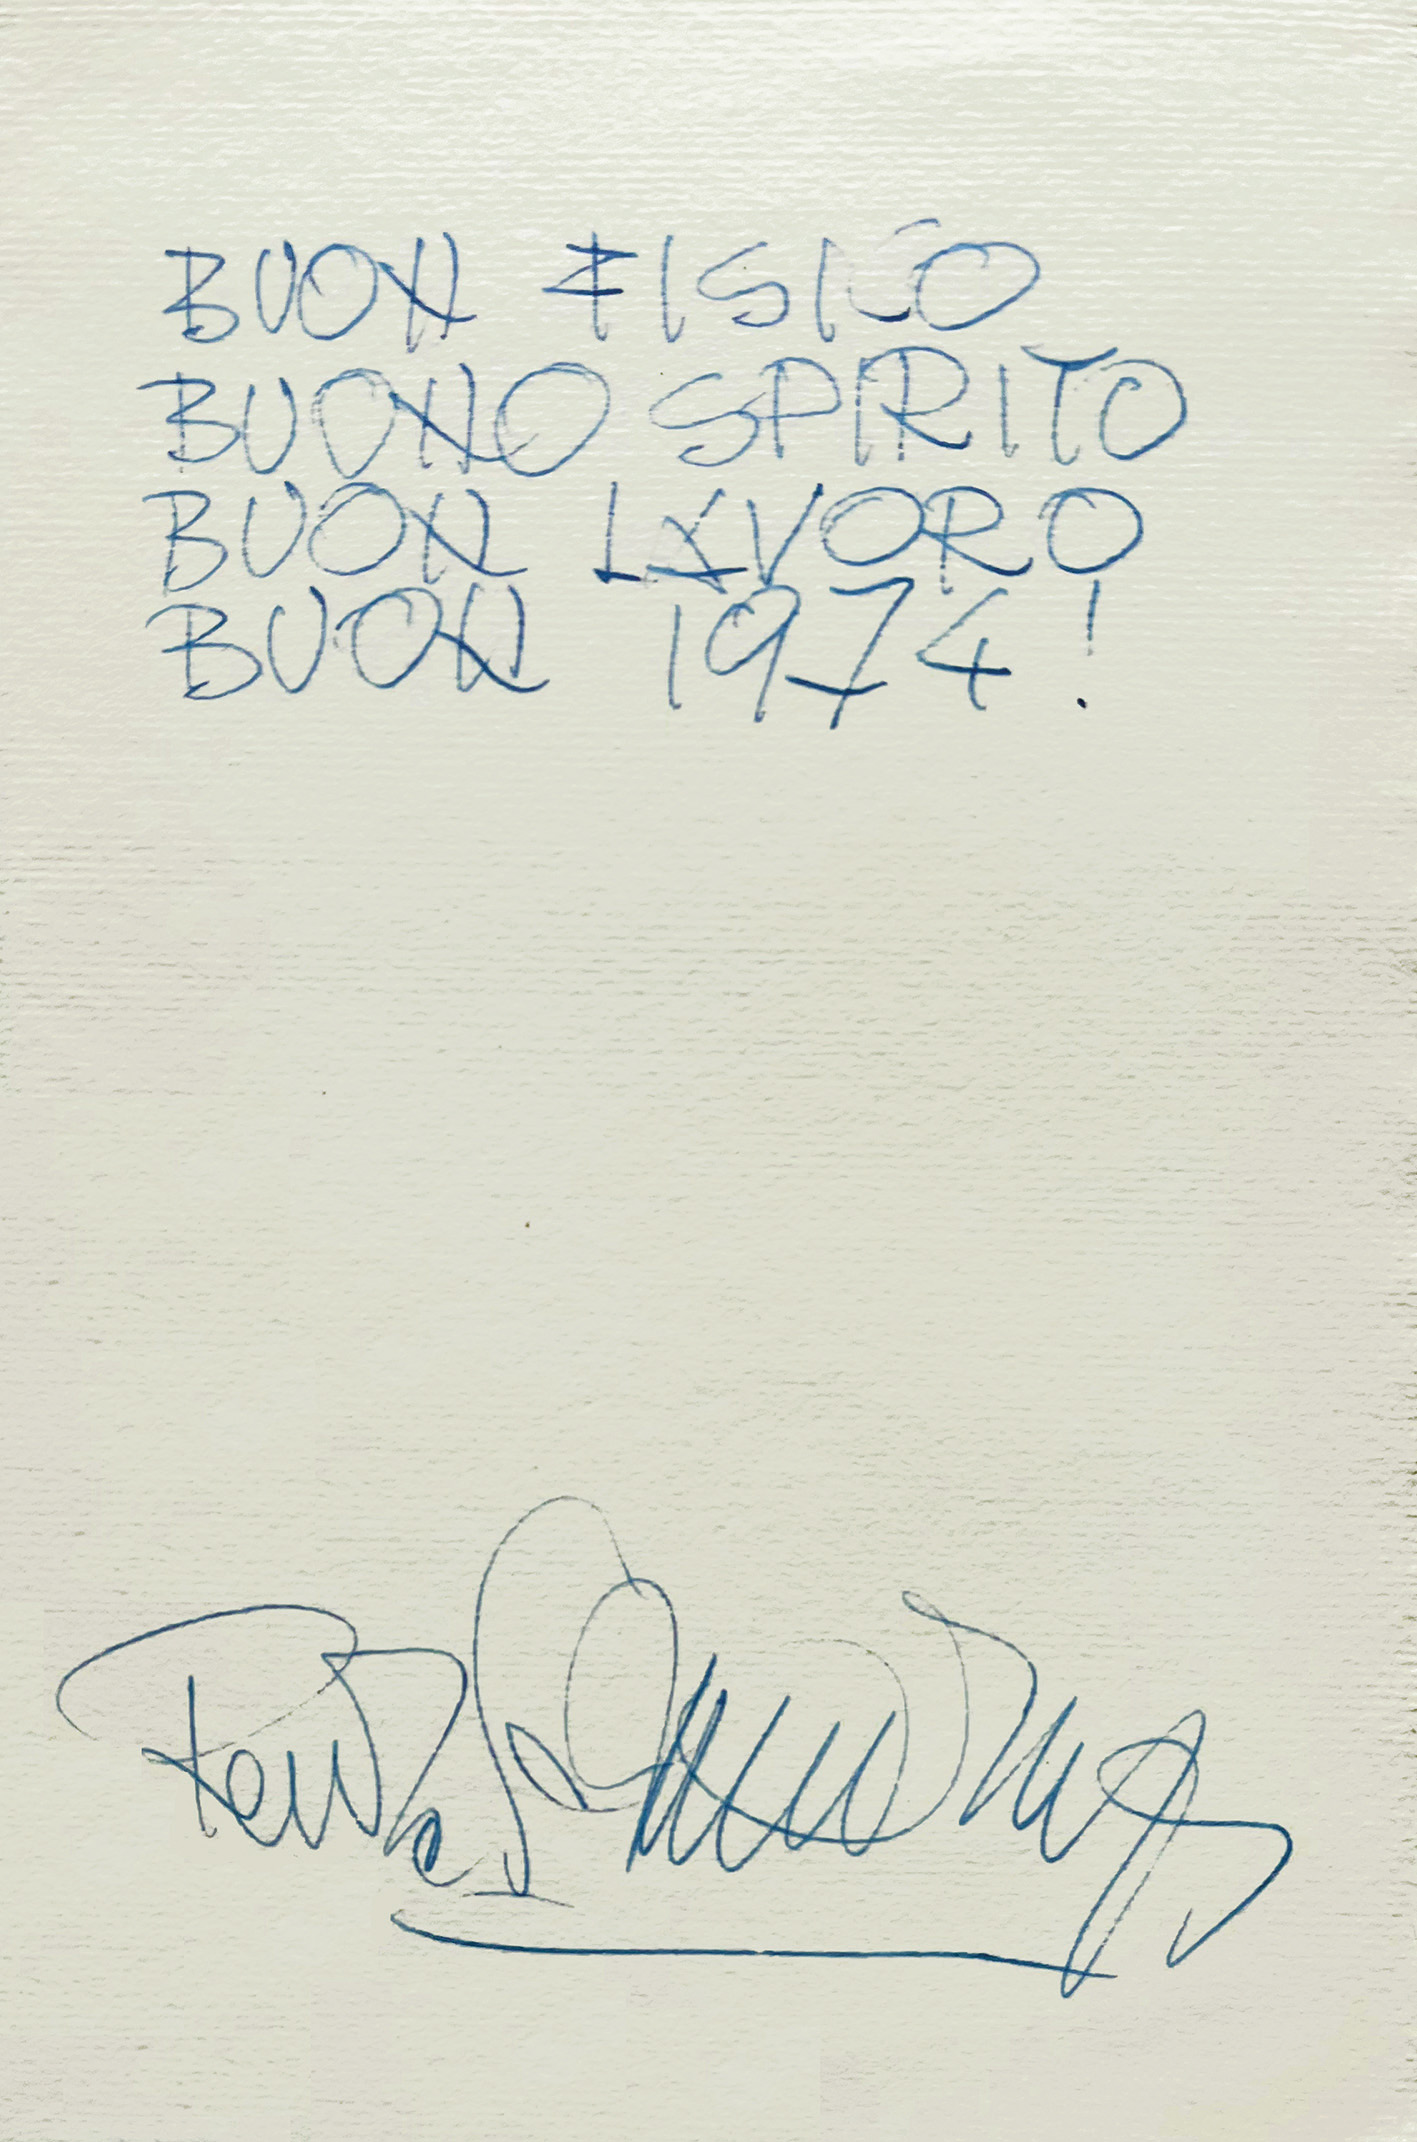 BUON FISICO
BUONO SPIRITO
BUON LAVORO
BUON 1974!